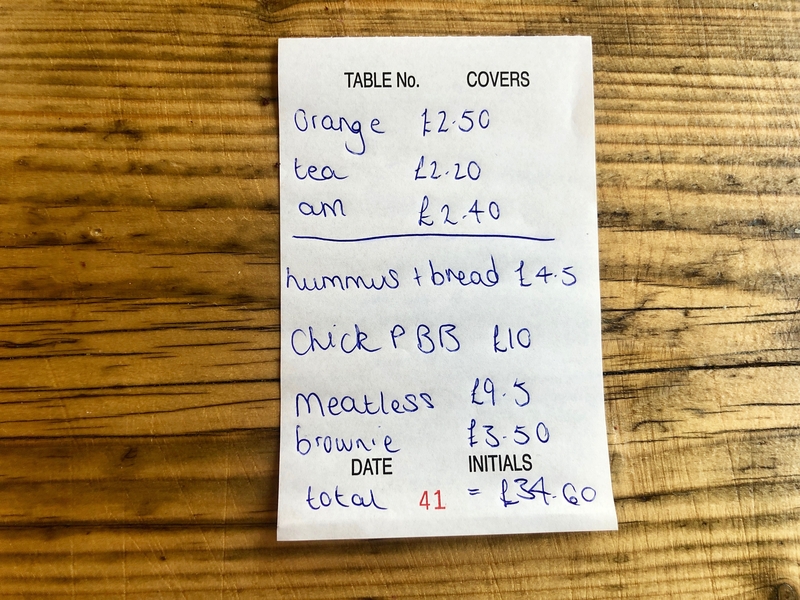 TABLE No. COVERS
Orange £2.50
tea £2.20
am £2.40
hummus + bread £4.5
Chick P BB £10
Meatless £9.5
brownie £3.50
DATE INITIALS
total 41 = £34.60